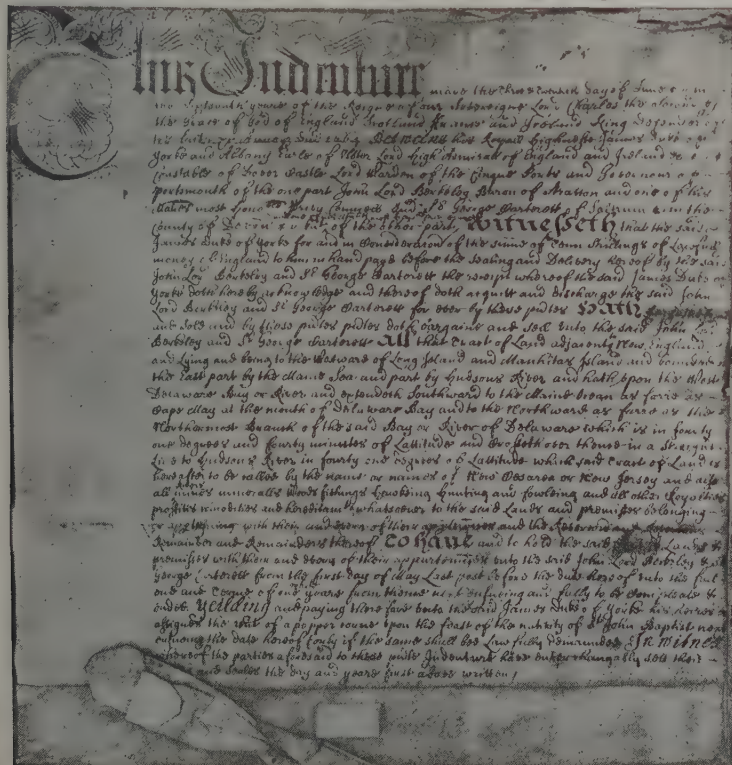 This Indenture made the three & twentieth day of June
the sixteenth yeare of the Reigne of our Sovereigne Lord Charles the
the Grace of God of England Scotland France and Ireland King Defender of
Betweene his Royall Highnesse James Duke of
Yorke and Albany Earle of Ulster Lord High Admirall of England and Ireland
Constable of Dover Castle Lord Warden of the Cinque Ports and Governour of
Portsmouth of the one part John Lord Berkeley Baron of Stratton and one of his
Maties most Honoble Privy Councell And Sr George Carterett of Saltrum in the
County of Devon of the other part, Witnesseth that the said
James Duke of Yorke for and in Consideracion of the summe of Tenn Shillings of Lawfull
money of England to him in hand payd before the Sealing and Delivery hereof by the said
John Lord Berkeley and Sr George Carterett the receipt whereof the said James Duke of
Yorke doth hereby acknowledge and thereof doth acquitt and discharge the said John
Lord Berkeley and Sr George Carterett for ever by these pntes Hath
and sold and by these pntes doth bargaine and sell unto the said John Lord
Berkeley and Sr George Carterett All that tract of Land adjacent to New England
and Lying and being to the Westward of Long Island and Manhitas Island and bounded on
the East part by the Maine Sea and part by Hudsons River and hath upon the West
Delaware Bay or River and extendeth Southward to the Maine Ocean as farre as
Cape May at the mouth of Delaware Bay and to the Northward as farre as the
Northermost Branch of the said Bay or River of Delaware which is in fourty
one degrees and fourty minutes of Lattitude and Crosseth over thence in a Streight
Line to Hudsons River in fourty one degrees of Lattitude which said tract of Land is
hereafter to be called by the name or names of New Cesarea or New Jersey and also
all Rivers mines mineralls Woods fishings hawking hunting and fowling and all other Royalties
proffitts comodities and hereditamts whatsoever to the said Lands and premisses belonging
or apperteining with their and every of their appurtenances and the Reversion
Remainder and Remainders thereof To have and to hold the said Lands &
premisses with their and every of their appurtenances unto the said John Lord Berkeley & Sr
George Carterett from the first day of May Last past before the date hereof unto the full
end and Terme of one yeare from thence next ensuing and fully to be Compleate &
ended, Yeilding and paying therefore unto the said James Duke of Yorke his heires
assignes the rent of a pepper corne upon the feast of the nativity of St John Baptist next
ensuing the date hereof only if the same shall bee Lawfully demaunded In witnes
whereof the parties aforesaid to these pnts Indentures have enterchangably sett their
and seales the day and yeare first above written /